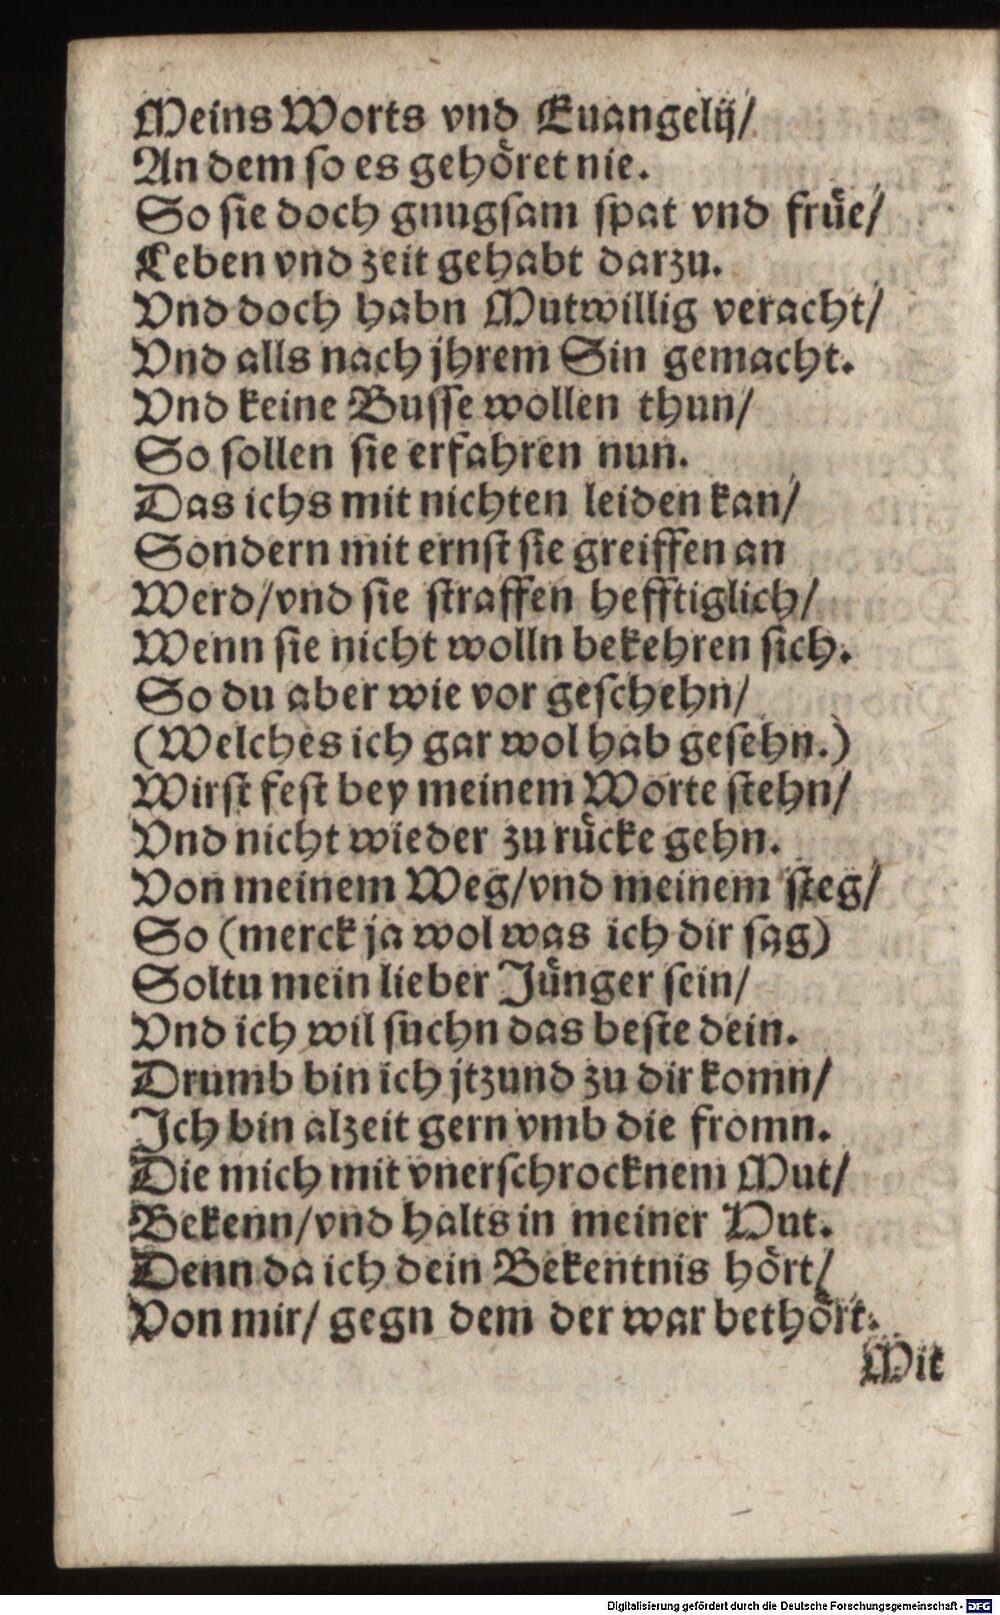 Meins Worts vnd Euangelij/
An dem so es gehöret nie.
So sie doch gnugsam spat vnd früe/
Leben vnd zeit gehabt darzu.
Vnd doch habn Mutwillig veracht/
Vnd alls nach jhrem Sin gemacht.
Vnd keine Busse wollen thun/
So sollen sie erfahren nun.
Das ichs mit nichten leiden kan/
Sondern mit ernst sie greiffen an
Werd/vnd sie straffen hefftiglich/
Wenn sie nicht wolln bekehren sich.
So du aber wie vor geschehn/
(Welches ich gar wol hab gesehn.)
Wirst fest bey meinem Worte stehn/
Vnd nicht wieder zu rücke gehn.
Von meinem Weg/vnd meinem steg/
So (merck ja wol was ich dir sag)
Soltu mein lieber Jünger sein/
Vnd ich wil suchn das beste dein.
Drumb bin ich jtzund zu dir komn/
Ich bin alzeit gern vmb die fromn.
Die mich mit vnerschrocknem Mut/
Bekenn/vnd halts in meiner Hut.
Denn da ich dein Bekentnis hört/
Von mir/ gegn dem der war bethört.
Mit
Digitalisierung gefördert durch die Deutsche Forschungsgemeinschaft - DFG